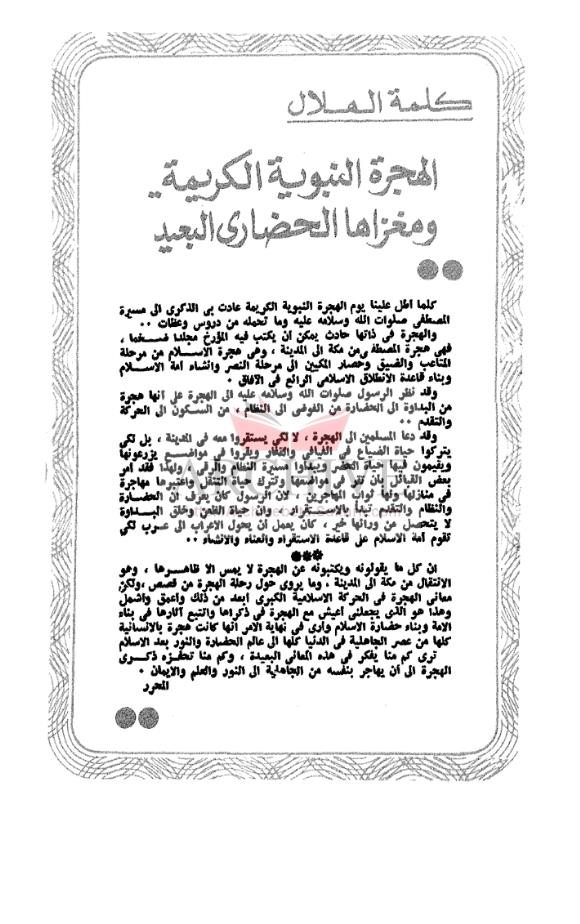 كلمة الهلال
الهجرة النبوية الكريمة
ومغزاها الحضارى البعيد
كلما اطل علينا يوم الهجرة النبوية الكريمة عادت بى الذكرى الى مسيرة
المصطفى صلوات الله وسلامه عليه وما تحمله من دروس وعظات ٠٠
والهجرة فى ذاتها حادث يمكن أن يكتب فيه المؤرخ مجلدا ضخما ،
فهى هجرة المصطفى من مكة الى المدينة ، وهى هجرة الاسلام من مرحلة
المتاعب والضيق وحصار المكيين الى مرحلة النصر وانشاء أمة الاسلام
وبناء قاعدة الانطلاق الاسلامى الرائع فى الآفاق ٠
وقد نظر الرسول صلوات الله وسلامه عليه الى الهجرة على أنها هجرة
من البداوة الى الحضارة من الفوضى الى النظام ، من السكون الى الحركة
والتقدم ٠٠
وقد دعا المسلمين الى الهجرة ، لا لكى يستقروا معه فى المدينة ، بل لكى
يتركوا حياة الضياع فى الفيافى والقفار ويقروا فى مواضع يزرعونها
ويقيمون فيها حياة التحضر ويبدأوا مسيرة النظام والرقى ، ولهذا فقد أمر
بعض القبائل بأن تقر فى مواضعها وتترك حياة التنقل واعتبرها مهاجرة
فى منازلها ولها ثواب المهاجرين ، لأن الرسول كان يعرف أن الحضارة
والنظام والتقدم تبدأ بالاستقرار ، وأن حياة الظعن وخلق البداوة
لا يتحصل من ورائها خير ، كان يعمل أن يحول الأعراب الى عرب لكى
تقوم أمة الاسلام على قاعدة الاستقرار والبناء والانشاء ٠٠
***
ان كل ما يقولونه ويكتبونه عن الهجرة لا يمس الا ظاهرها ، وهو
الانتقال من مكة الى المدينة ، وما يروى حول رحلة الهجرة من قصص ، ولكن
معانى الهجرة فى الحركة الاسلامية الكبرى أبعد من ذلك وأعمق وأشمل
وهذا هو الذى يجعلنى أعيش مع الهجرة فى ذكراها واتتبع آثارها فى بناء
الامة وبناء حضارة الاسلام وأرى فى نهاية الامر أنها كانت هجرة بالانسانية
كلها من عصر الجاهلية فى الدنيا كلها الى عالم الحضارة والنور بعد الاسلام
ترى كم منا يفكر فى هذه المعانى البعيدة ، وكم منا تحفزه ذكرى
الهجرة الى أن يهاجر بنفسه من الجاهلية الى النور والعلم والايمان ٠
المحرر